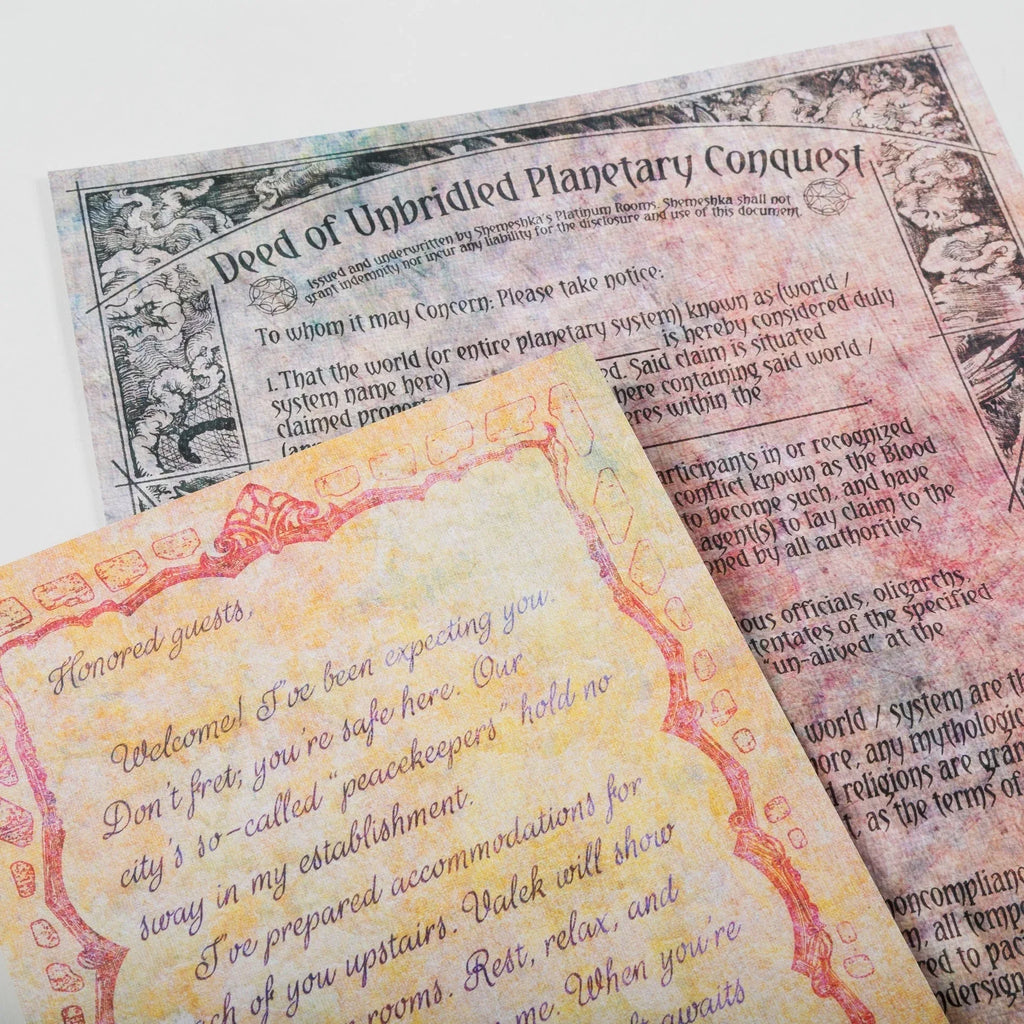 Deed of Unbridled Planetary Conquest
Issued and underwritten by Shemeshka's Platinum Rooms. Shemeshka shall not
grant indemnity nor incur any liability for the disclosure and use of this document.
To whom it may Concern: Please take notice:
1. That the world (or entire planetary system) known as (world /
system name here) is hereby considered duly
claimed . Said claim is situated
here containing said world /
within the
participants in or recognized
conflict known as the Blood
to become such, and have
agent(s) to lay claim to the
by all authorities
officials, oligarchs,
of the specified
"un-alived" at the
world / system are
any
religions are
as the terms of
all
to
Honored guests,
Welcome! I've been expecting you.
Don't fret; you're safe here. Our
city's so-called "peacekeepers" hold no
sway in my establishment.
I've prepared accommodations for
of you upstairs. Valek will show
rooms. Rest, relax, and
me. When you're
awaits